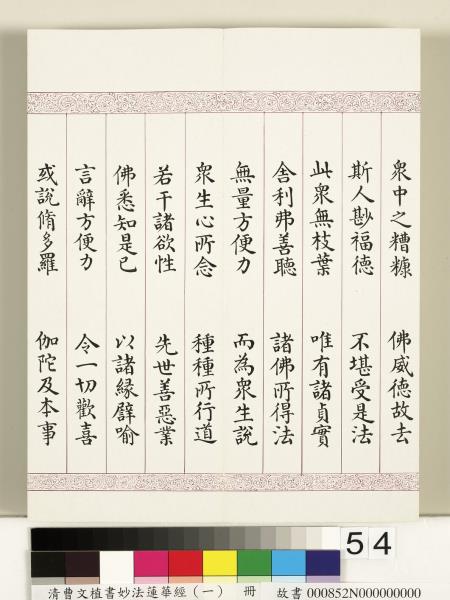 衆中之糟糠　佛威德故去
斯人尠福德　不堪受是法
此衆無枝葉　唯有諸貞實
舍利弗善聽　諸佛所得法
無量方便力　而為衆生說
衆生心所念　種種所行道
若干諸欲性　先世善惡業
佛悉知是已　以諸緣譬喻
言辭方便力　令一切歡喜
或說脩多羅　伽陀及本事
54
清曹文植書妙法蓮華經（一）　冊　故書 000852N000000000